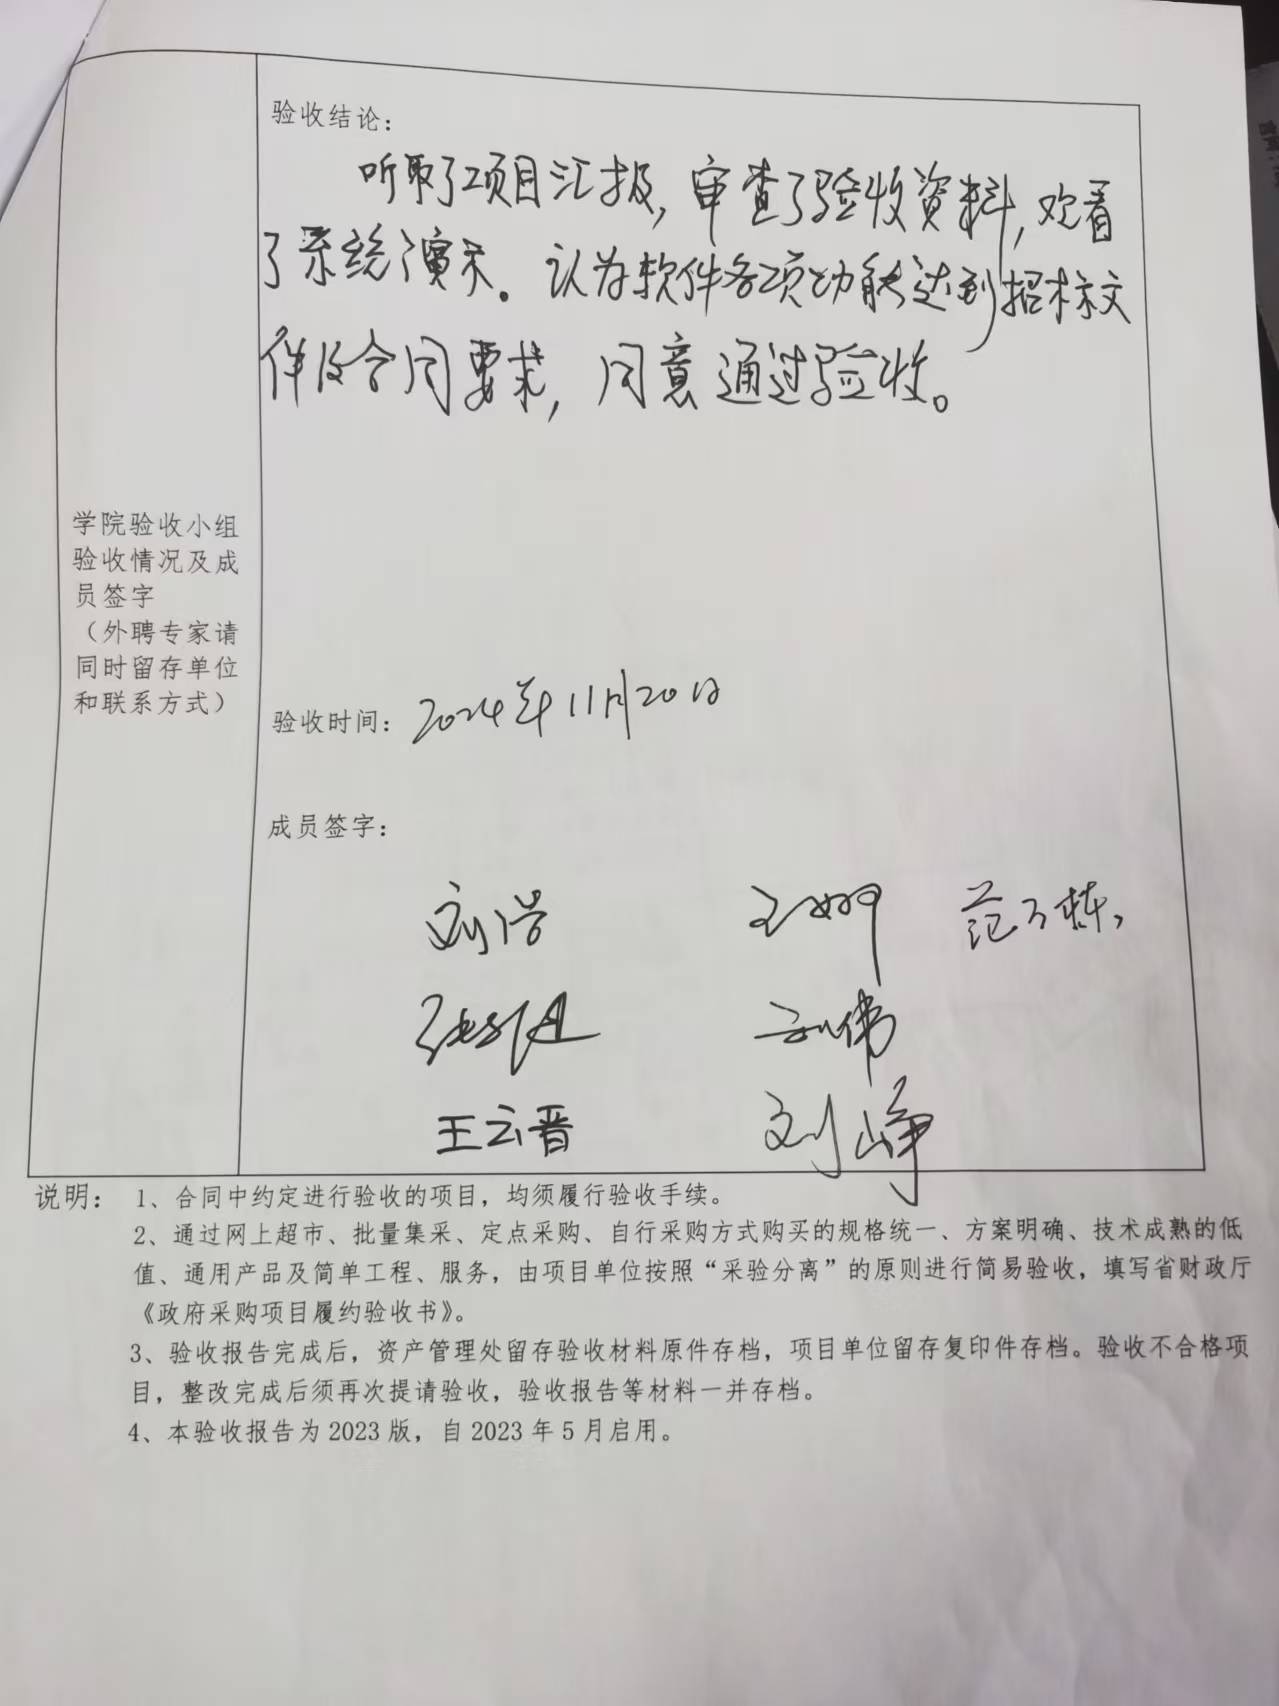 验收结论：
听取了项目汇报，审查了验收资料，观看
了系统演示。认为软件各项功能达到招标文
件及合同要求，同意通过验收。
学院验收小组
验收情况及成
员签字
（外聘专家请
同时留存单位
和联系方式）
验收时间：2024年11月20日
成员签字：
刘浩 王娜
刘伟
王云晋 刘峥
说明：1、合同中约定进行验收的项目，均须履行验收手续。
2、通过网上超市、批量集采、定点采购、自行采购方式购买的规格统一、方案明确、技术成熟的低
值、通用产品及简单工程、服务，由项目单位按照“采验分离”的原则进行简易验收，填写省财政厅
《政府采购项目履约验收书》。
3、验收报告完成后，资产管理处留存验收材料原件存档，项目单位留存复印件存档。验收不合格项
目，整改完成后须再次提请验收，验收报告等材料一并存档。
4、本验收报告为2023版，自2023年5月启用。